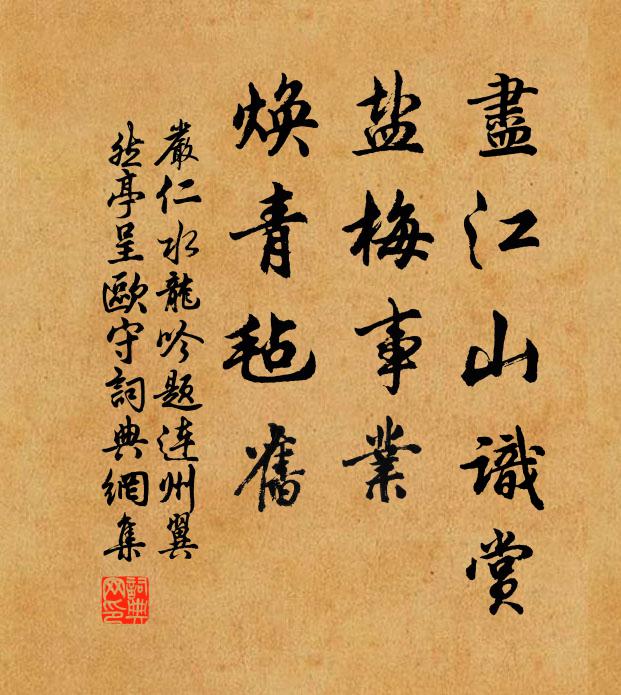 盡江山識賞
盐梅事業
焕青毡舊
嚴仁水龍吟題連州翼
然亭呈歐守詞典網集
詞典
网印